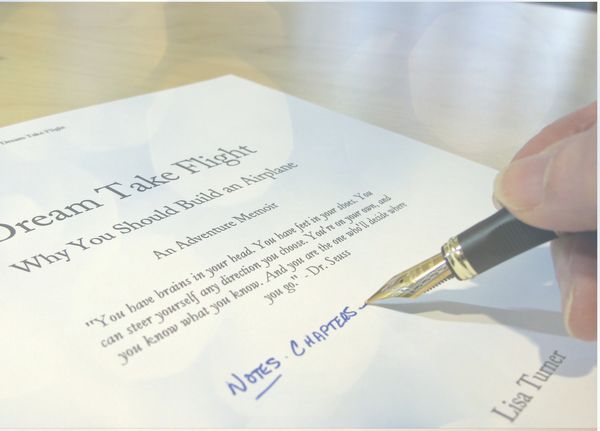 Dream Take Flight
Dream Take Flight
Why You Should Build an Airplane
An Adventure Memoir
"You have brains in your head. You have feet in your shoes. You
can steer yourself any direction you choose. You're on your own, and
you know what you know. And you are the one who'll decide where
you go." - Dr. Seuss
NOTES. CHAPTERS
Lisa Turner